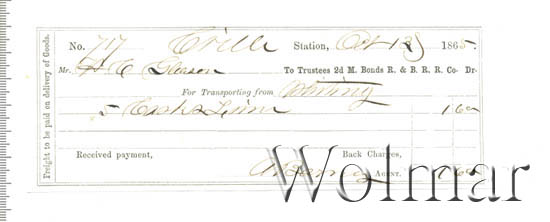 Freight to be paid on delivery of Goods.
No. 717 Station, Oct 13 1865.
Mr. H C Gleason To Trustees 2d M. Bonds R. & B. R. R. Co. Dr.
For Transporting from Whiting
5 Casks Lime 1.60
Received payment, Back Charges,
AGENT. 1.60
Wolmar